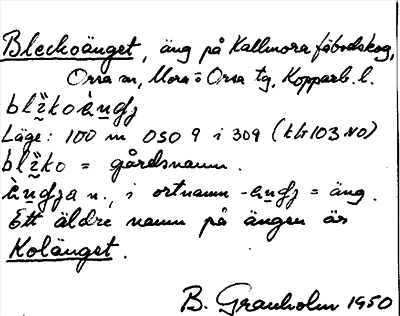 Bleckoänget, äng på Kallmora fäbodskog,
Orsa sn, Mora o Orsa tg, Kopparb. l.
Läge: 100 m OSO 9 i 309 (kbl 103 NO)
= gårdsnamn.
n., i ortnamn = äng.
Ett äldre namn på ängen är
Kolänget.
B. Granholm 1950